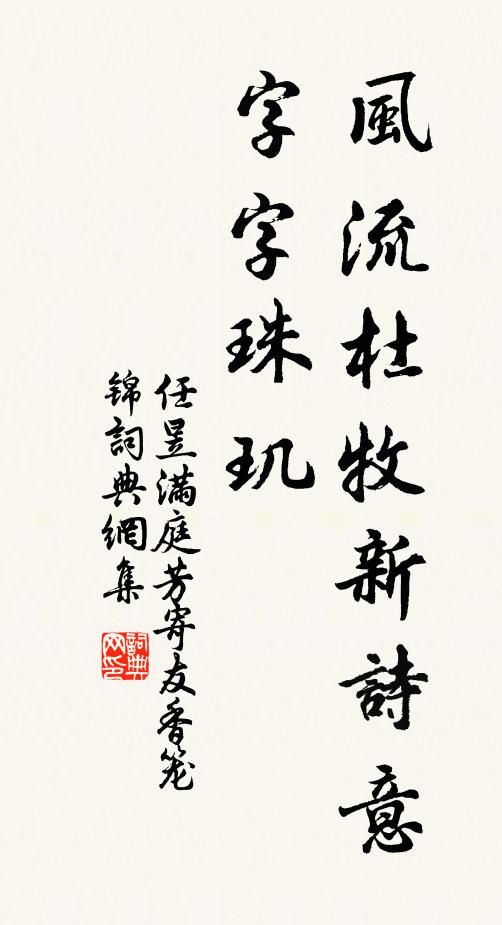 風流杜牧新詩意
字字珠玑
任昱满庭芳寄友香笼
锦詞典網集
詞典网印